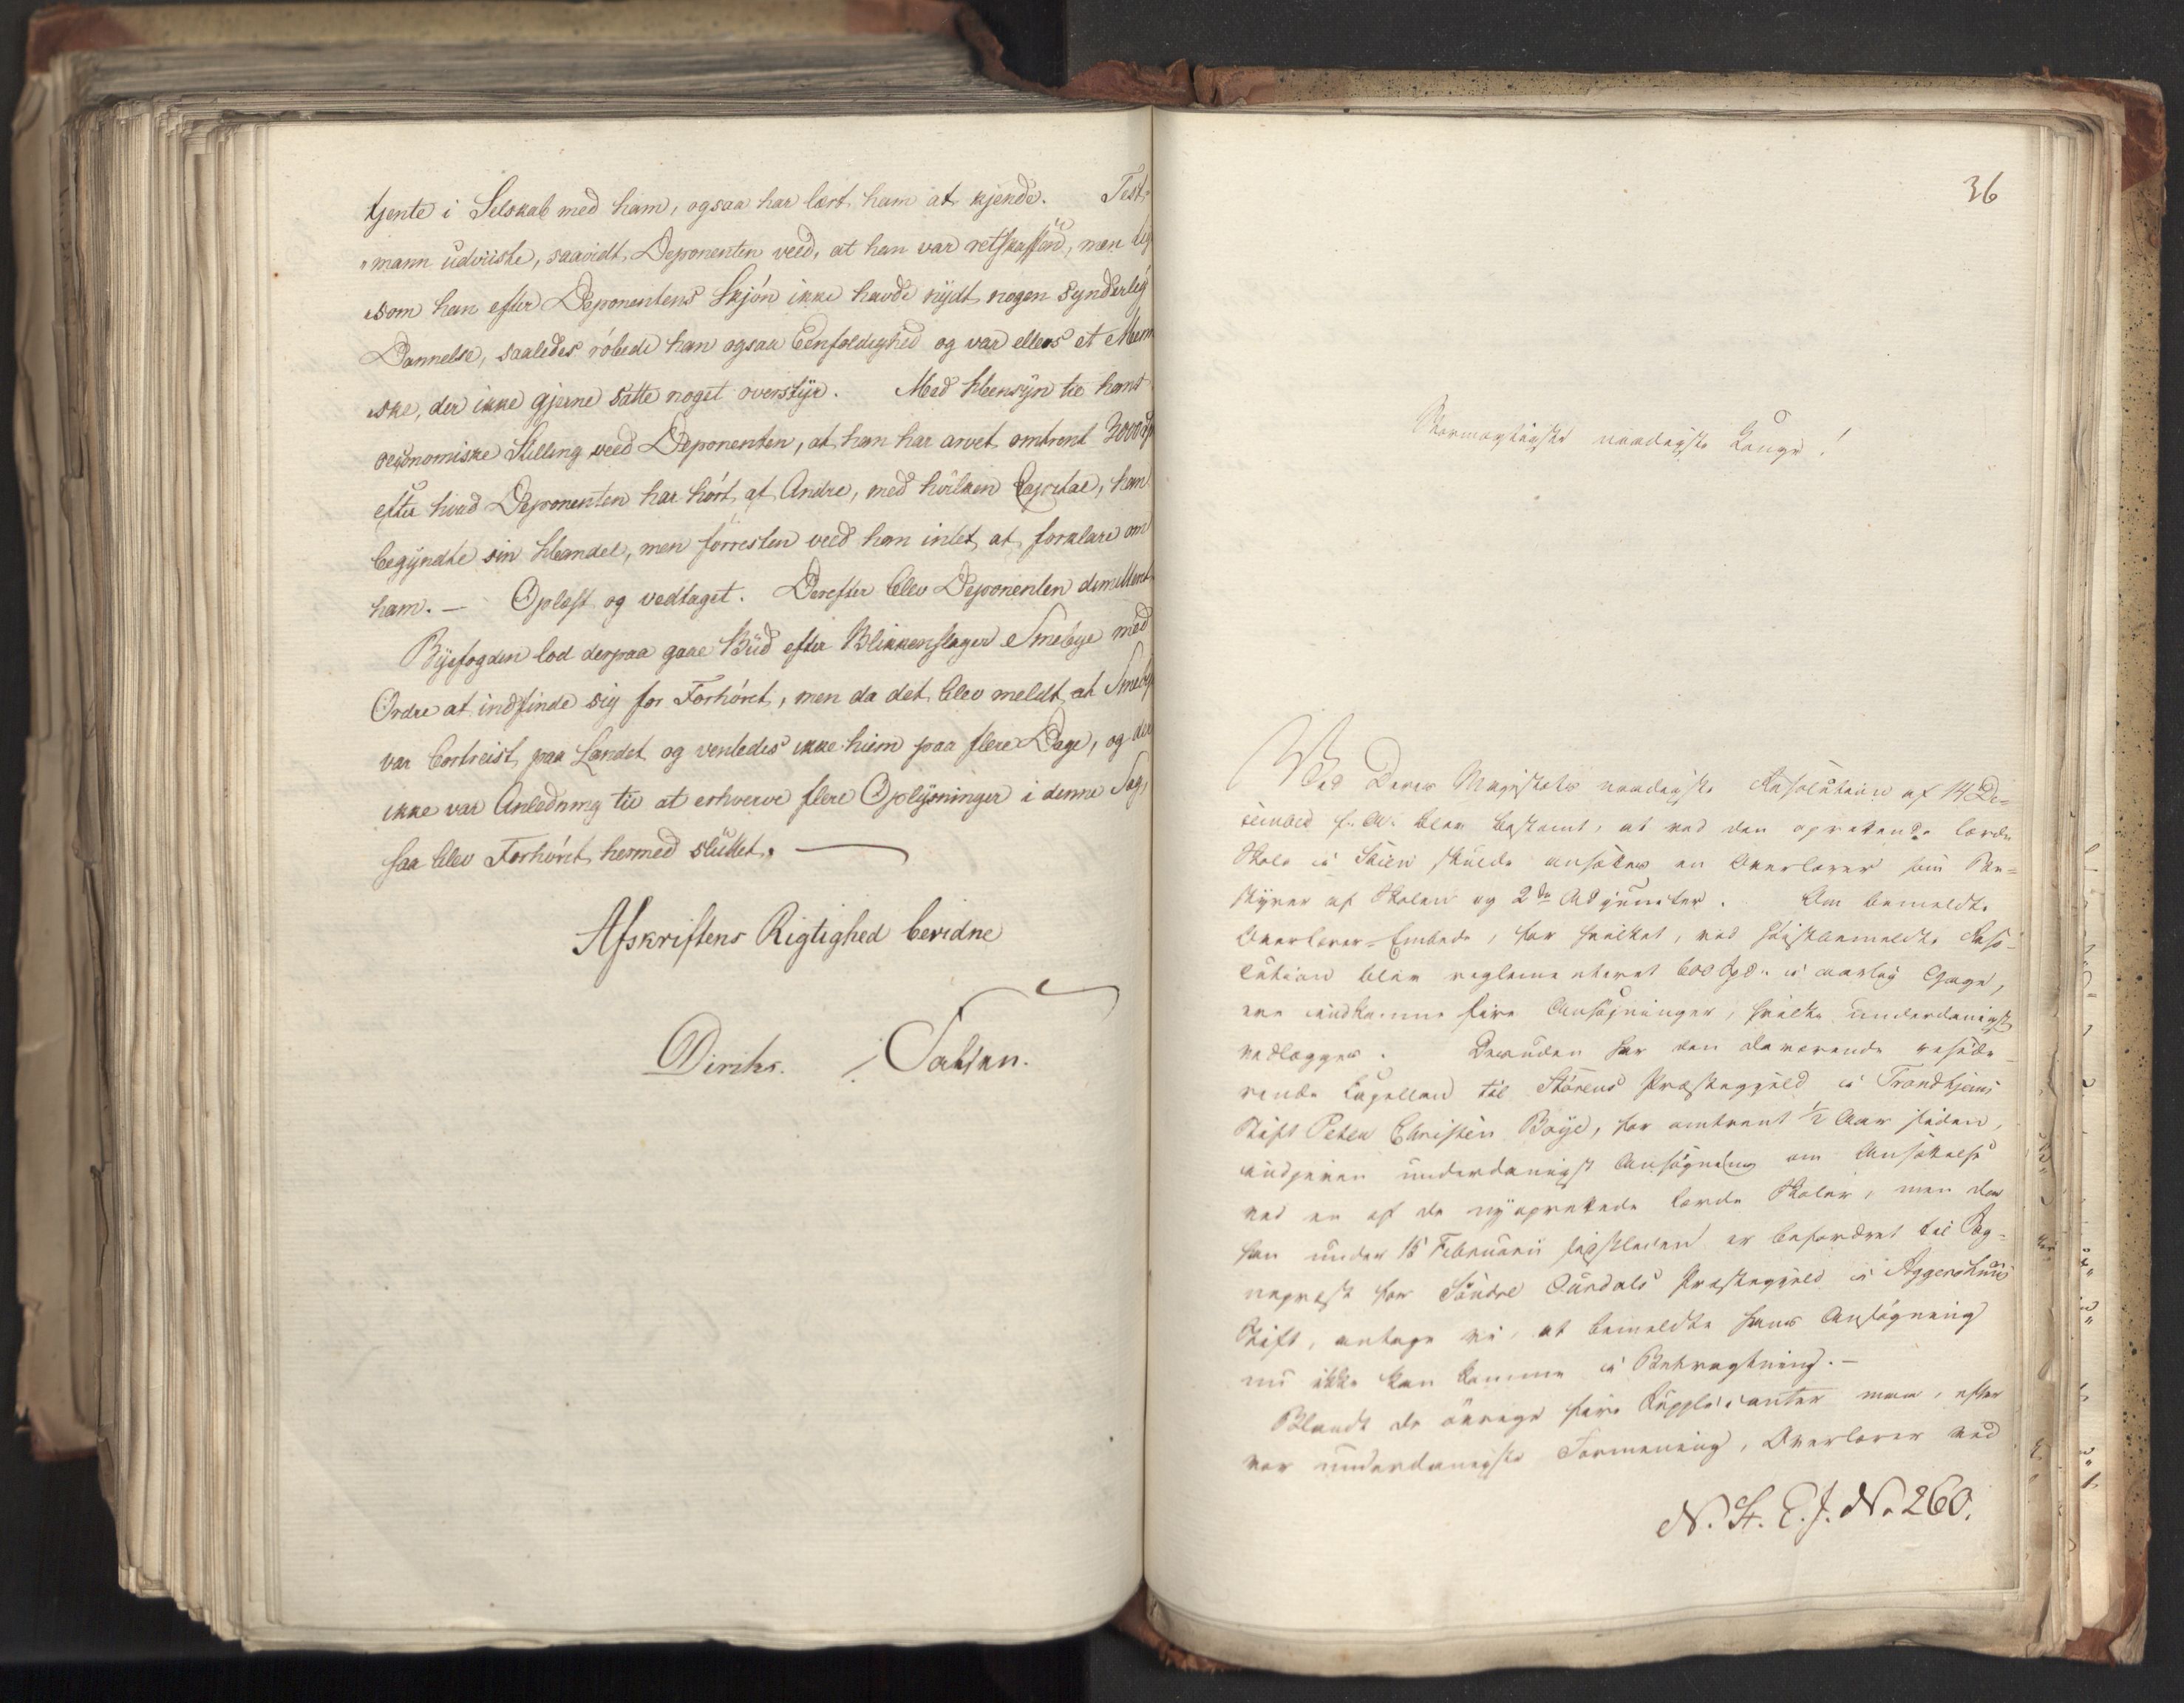 tjente i Selskab med ham, ogsaa har lært ham at kjende. Test-
"mann udviiste, saavidt Deponenten veed, at han var retskaffen, men lig
"som han efter Deponentens Skjön ikke havde nydt nogen synderlig
Dannelse, saaledes röbede han ogsaa Eenfoldighed og var ellers et Men
"ske, der ikke gjerne satte noget overstyr. Med Hensyn til hans
oeconomiske Stilling veed Deponenten, at han har arvet omtrent 3000
efter hvad Deponenten har hört af Andre, med hvilken Capital, han
begyndte sin Handel, men forresten veed han intet at forklare om
ham. — Oplæst og vedtaget. Derefter blev Deponenten demitteret
Byefogden lod derpaa gaae Bud efter Blikkenslager Smebye med
Ordre at indfinde sig for Forhöret, men da det blev meldt at Smeby
var bortreist paa Landet og ventedes ikke hiem paa flere Dage, og der
ikke var Anledning til at erhverve flere Oplysninger i denne Sag,
saa blev Forhöret hermed sluttet. —
Afskriftens Rigtighed bevidne
Diriks.
36
Stormægtigste naadigste Konge!
Ved Deres Majestæts naadigste Resolution af 14 De-
cember f. A. blev bestemt, at ved den oprettende lærde
Skole i Skien skulde ansættes en Overlærer som Be-
styrer af Skolen og 2de Adjuncter. Om bemeldte
Overlærer-Embede, for hvilket, ved höistbemeldte Reso-
lution blev reglementeret 600 Spd. i aarlig Gage,
ere indkomne fire Ansögninger, hvilke underdanigst
vedlægges. Desuden har den daværende reside-
rende Capellan til Störens Præstegjeld i Trondhjems
Stift Peter Christen Boye, for omtrent 1/2 Aar siden,
indgivet underdanigst Ansögning om Ansættelse
ved en af de nyoprettede lærde Skoler, men da
han under 15 Februarii sidstleden er befordret til Sog-
nepræst for Söndre Ourdals Præstegjeld i Aggershuus
Stift, antage vi, at bemeldte hans Ansögning
nu ikke kan komme i Betragtning. —
Blandt de övrige fire Supplicanter maa, efter
vor underdanigste Formening, Overlærer ved
N. St. E. J. No 260.